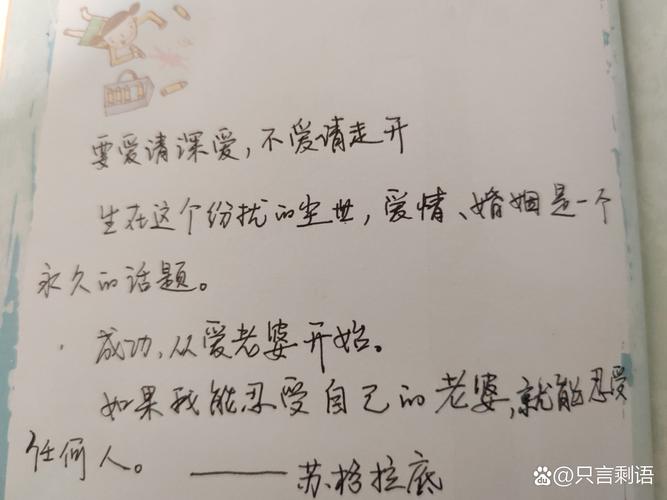 要爱请深爱，不爱请走开
生在这个纷扰的尘世，爱情、婚姻是一个
永久的话题。
成功、从爱老婆开始。
如果我能忍受自己的老婆，就能忍受
任何人。
——苏格拉底
只言剩语